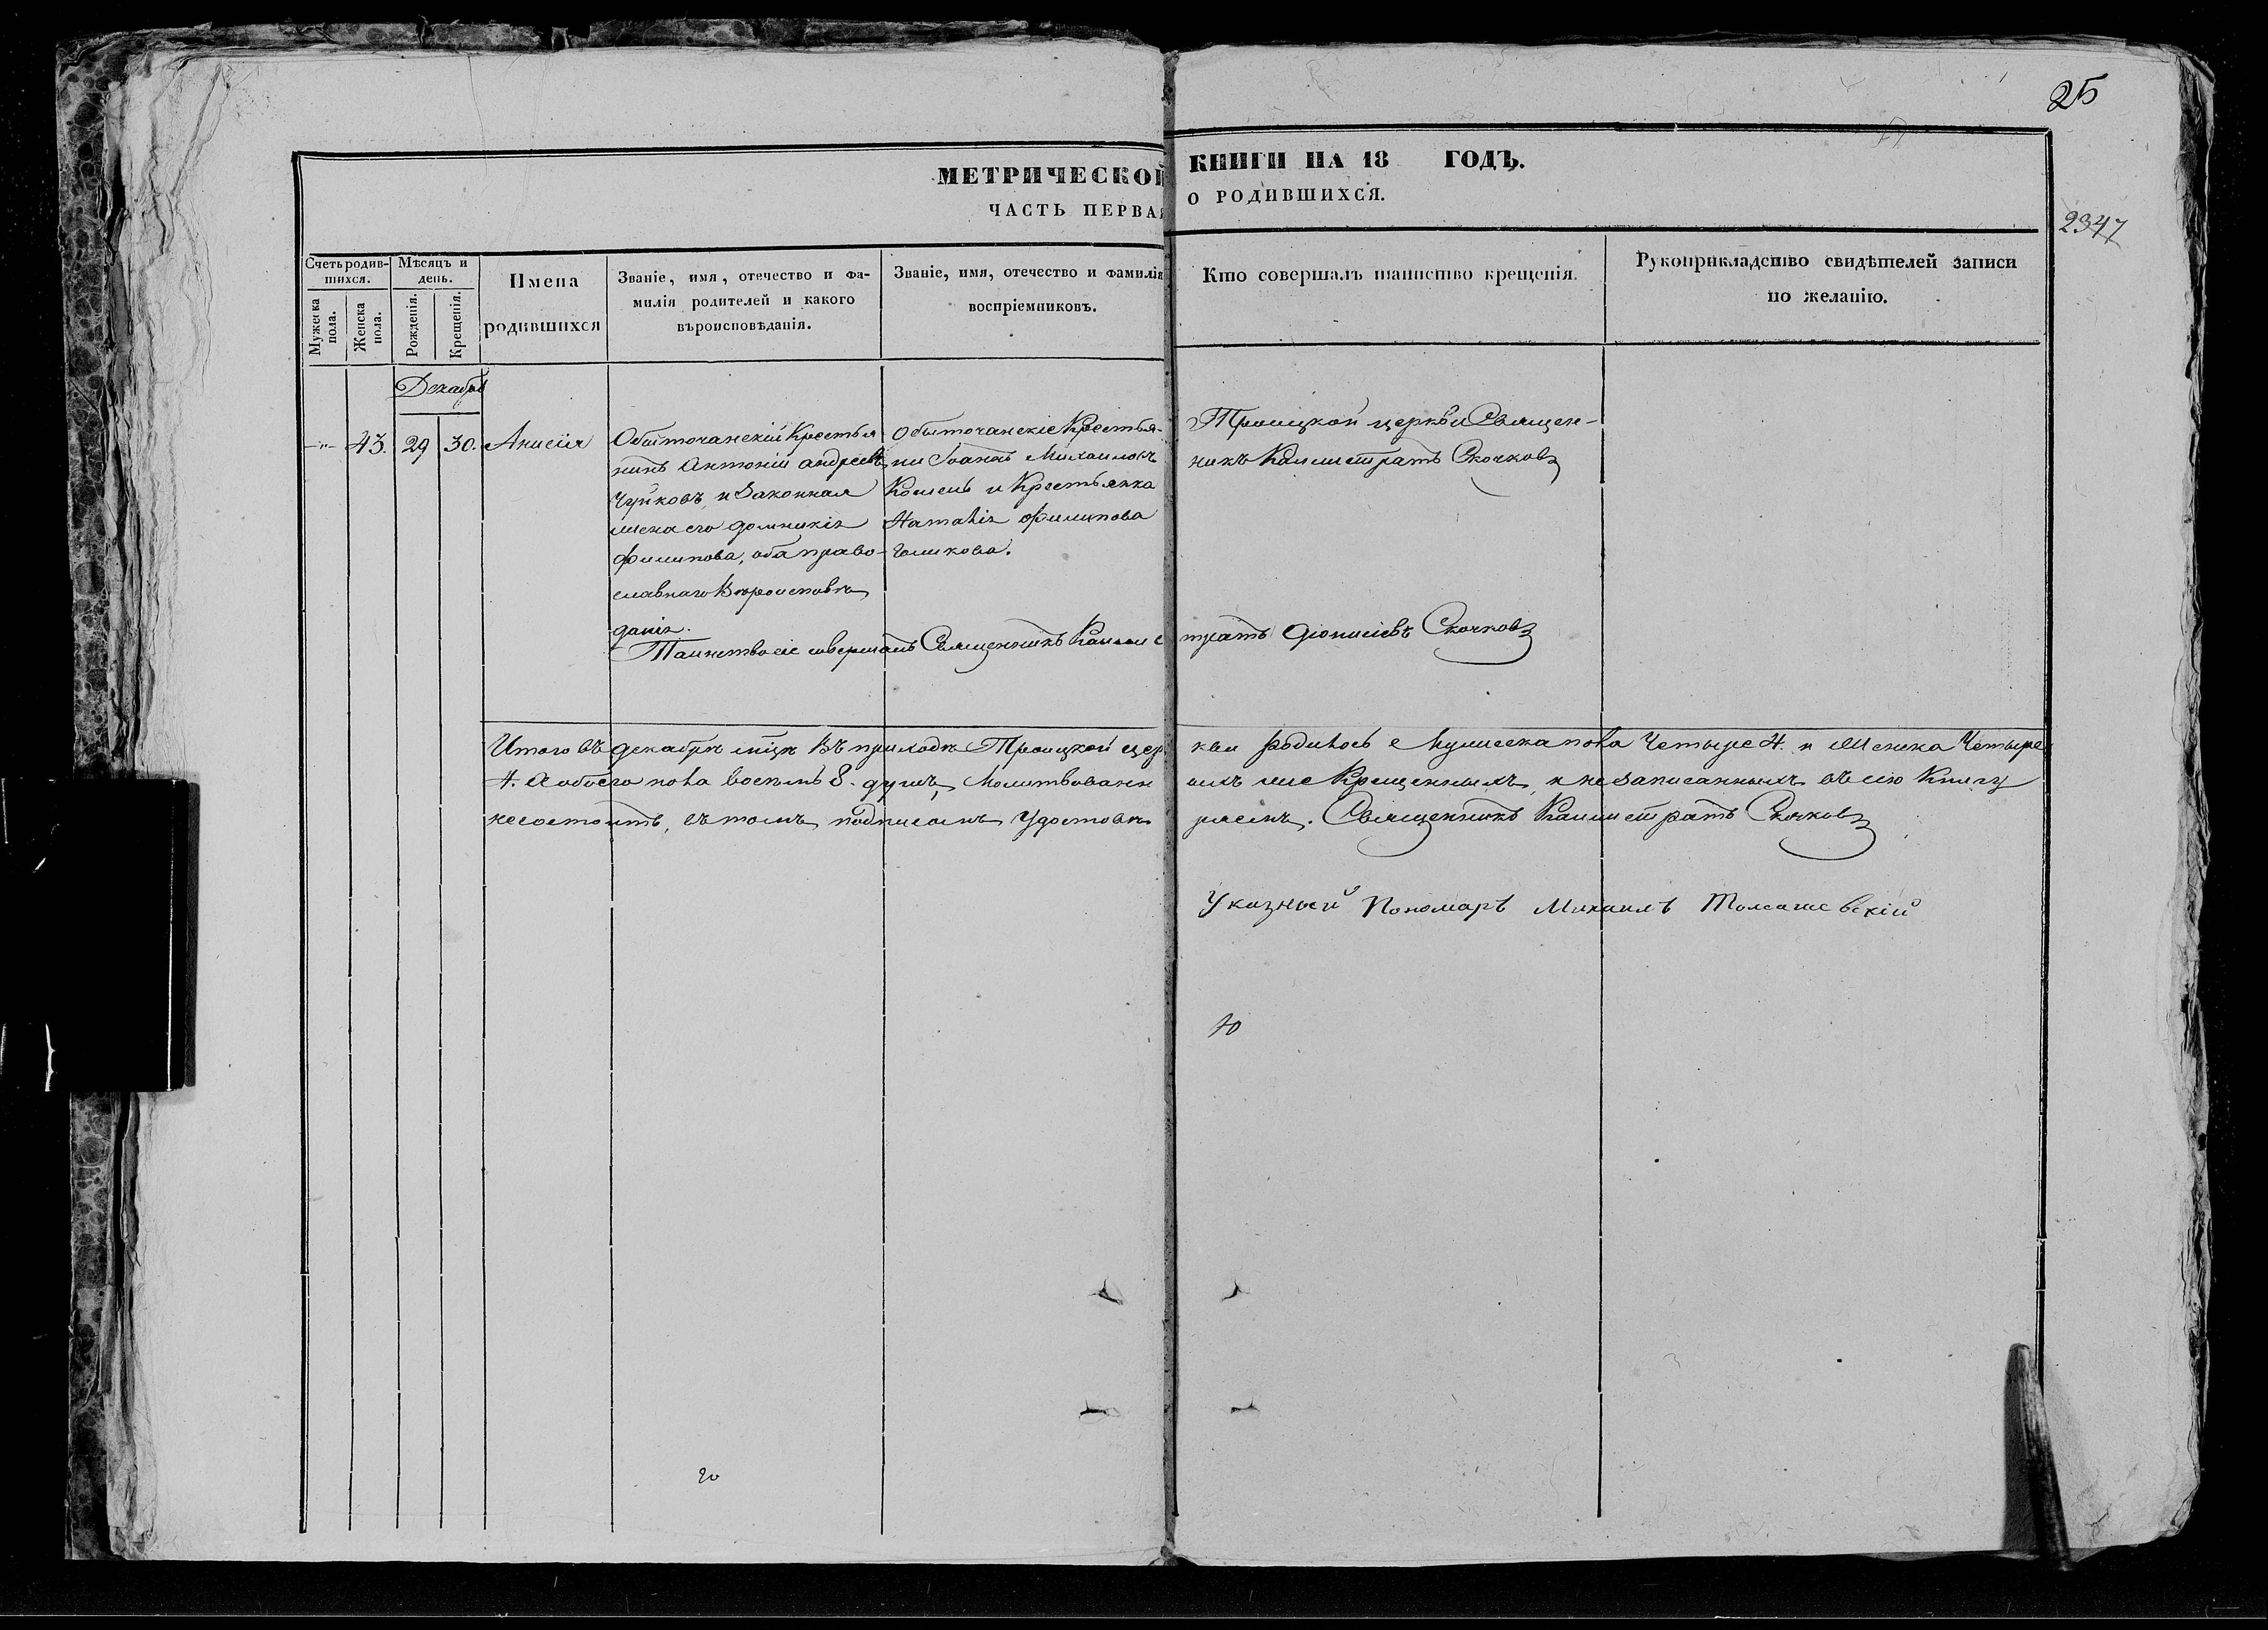 25
МЕТРИЧЕСКОЙ КНИГИ НА 18 ГОДЪ.
ЧАСТЬ ПЕРВАЯ О РОДИВШИХСЯ.
2347
Счетъ родив-
шихся.
Мужеска
пола.
Женска
пола.
Мѣсяцъ и
день.
Рожденія.
Крещенія.
Имена
родившихся
Званіе, имя, отечество и фа-
милія родителей и какого
вѣроисповѣданія.
Званіе, имя, отечество и фамилія
воспріемниковъ.
Кто совершалъ таинство крещенія.
Рукоприкладство свидѣтелей записи
по желанію.
Декабрь
43. 29 30. Анисія
Обыточанскій Крестья
нинъ Антоній Андреевъ
Чуйковъ, и Законная
жена его Домникія
Филипова, оба право-
славнаго Вѣроисповѣ
данія.
Обыточанскіе Крестья-
ни Іоаннъ Михаиловъ
и Крестьянка
Наталія Филипова
Голикова.
Троицкой церкви Священ-
никъ Калистратъ Скочковъ
Таинство сіе совершалъ Священникъ Калистратъ Діонисіевъ Скочковъ
Итого въ декабрѣ мцѣ Въ приходѣ Троицкой церкви родилось Мужеска пола Четыре 4. и Женска Четыре
4. А обоего пола восемь 8. душъ, Молитвованныхъ не Крещенныхъ, и незаписанныхъ въ сію Книгу
несостоитъ, въ томъ подписомъ Удостовѣряемъ. Священникъ Калистратъ Скочковъ
Указный Пономарь Михаилъ Томашевскій